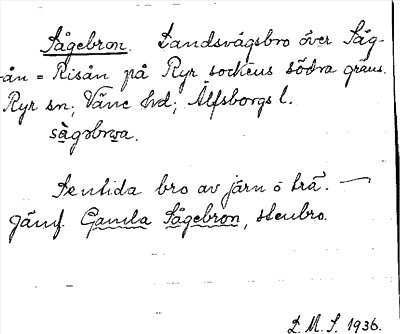 Sågebron. Landsvägsbro över Såg-
ån = Risån på Ryr sockens södra gräns.
Ryr sn; Väne hd; Älfsborgs l.
Sentida bro av järn o trä. —
Jämf. Gamla Sågebron, stenbro.
D. M. S. 1936.